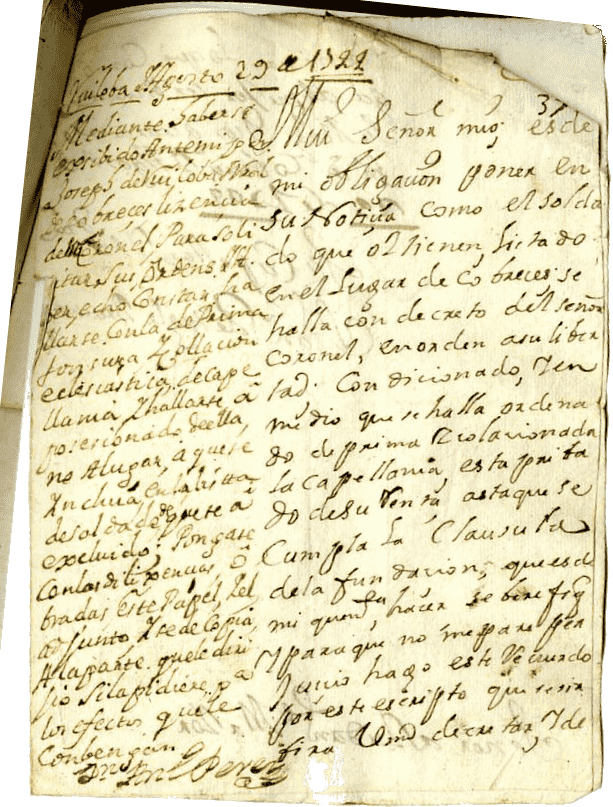 Agosto 29 de 1722
Mediante haberse
exsibido Antemi
Joseph de
de Cobreces lizencia
del Coronel, Para soli
zitar sus ordenes
hecho Constar, ha
llarse Con la de Prima
tonsura Y Collacion
eclesiastica, de la Cape
llania Y hallarse a
posesionado de ella,
no A lugar, a que se
Yncluia, en la lista
de soldados que se a
excluido; Pongase
Con las dilixencias o
bradas Este Papel, Y el
adjunto Y se de Copia
A la parte que le diri
jio si la pidiere pa
los efectos que le
Conbengan
Perez
37
Mui Señor mio, es de
mi obligacion poner en
su Notiçia como el solda
do que oi tienen listado
en el Lugar de Cobreces se
halla con decreto del señor
Coronel, en orden a su liber
tad. Condicionado, Y en
medio que se halla ordena
do de prima Y colacionada
la Capellania, esta priba
do de su Renta, asta que se
Cumpla la Clausula
de la fundacion, que es de
mi quenta, hacer se berefiq
Y para que no me pare per
Juicio hago este Recurdo
por este escripto que serir
fira Vmd decretar, Y de